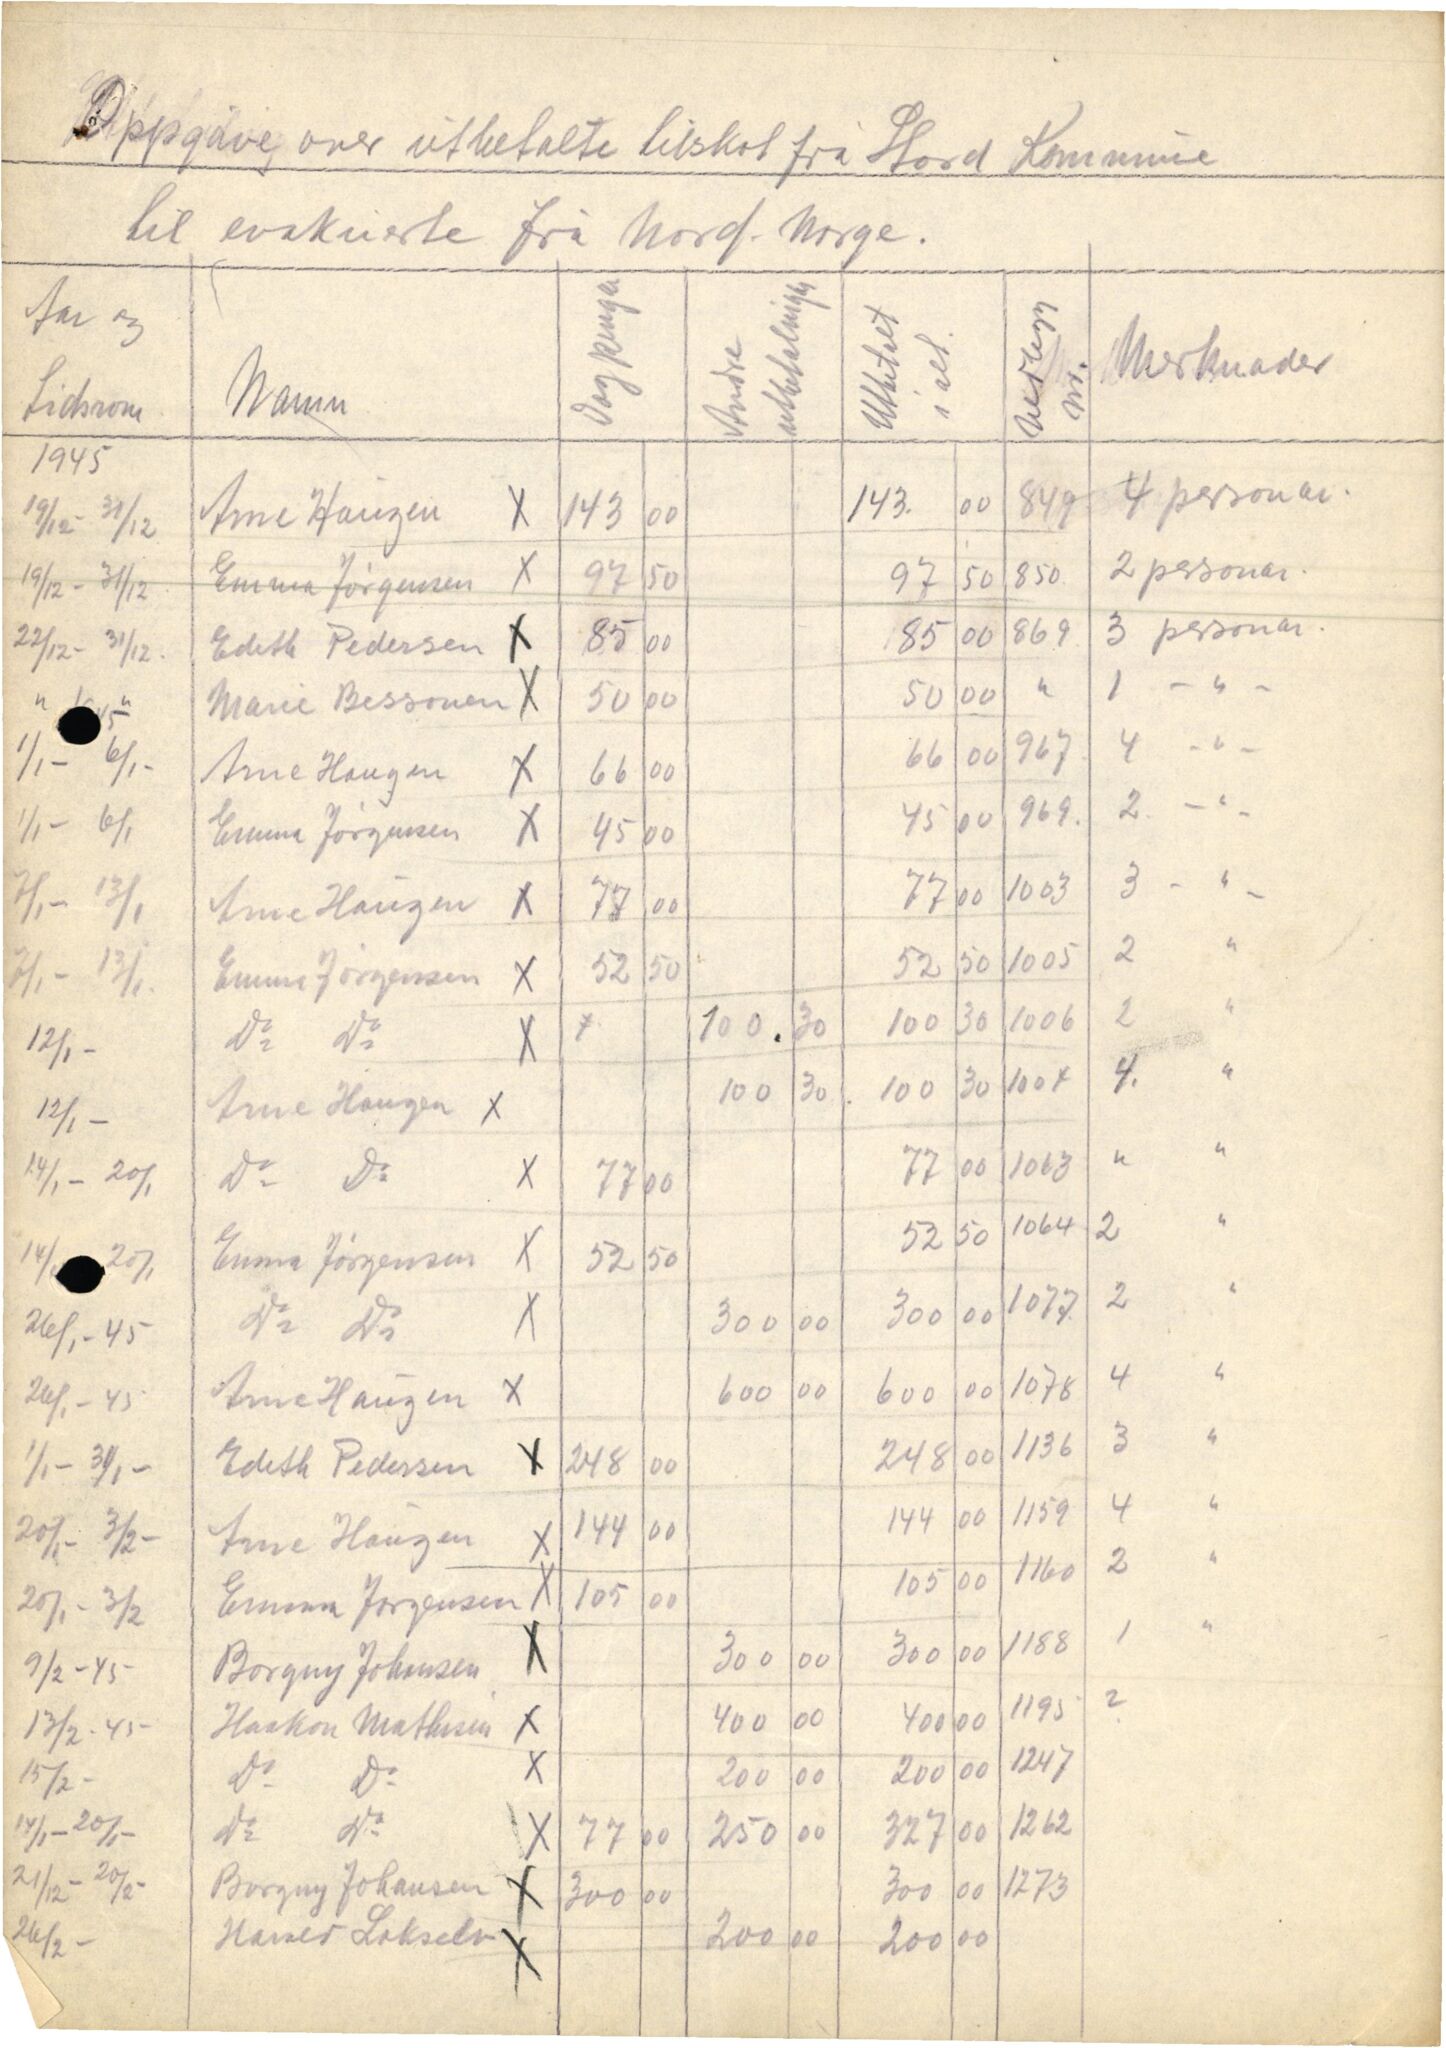 Oppgåve over utbetalte tilskot frå Stord Kommune
til evakuerte frå Nord-Norge.
Aar og Tidsrom Namn Dagpenger Andre utbetalingar Utbetalt i alt. Vedlegg nr. Merknader
1945
19/12 - 31/12 Arne Haugen X 143 00 143. 00 849 4 personar.
19/12 - 31/12 Emma Jørgensen X 97 50 97 50 850 2 personar.
22/12 - 31/12. Edith Pedersen X 85 00 85 00 869 3 personar.
" " Marie Bessonen X 50 00 50 00 " 1 - " -
1/1 - 6/1 - Arne Haugen X 66 00 66 00 967 4 - " -
1/1 - 6/1 Emma Jørgensen X 45 00 45 00 969. 2. - " -
7/1 - 13/1 Arne Haugen X 77 00 77 00 1003 3 - " -
7/1 - 13/1. Emma Jørgensen X 52 50 52 50 1005 2 "
12/1 - Do Do X 100. 30 100 30 1006 2 "
12/1 - Arne Haugen X 100 30. 100 30 1007 4. "
14/1 - 20/1 Do Do X 77 00 77 00 1063 " "
14/1 20/1 Emma Jørgensen X 52 50 52 50 1064 2 "
26/1 - 45 Do Do X 300 00 300 00 1077. 2 "
26/1 - 45 Arne Haugen X 600 00 600 00 1078 4 "
1/1 - 31/1 - Edith Pedersen X 248 00 248 00 1136 3 "
20/1 - 3/2 - Arne Haugen X 144 00 144 00 1159 4 "
20/1 - 3/2 Emma Jørgensen X 105 00 105 00 1160 2 "
9/2 - 45 - Borgny Johansen X 300 00 300 00 1188 1 "
13/2 - 45 - Haakon Mathisen X 400 00 400 00 1195 ?
15/2 - Do Do X 200 00 200 00 1247
14/1 - 20/1 - Do Do X 77 00 250 00 327 00 1262
21/12 - 20/2 - Borgny Johansen X 300 00 300 00 1273
26/2 - Lakselv X 200 00 200 00